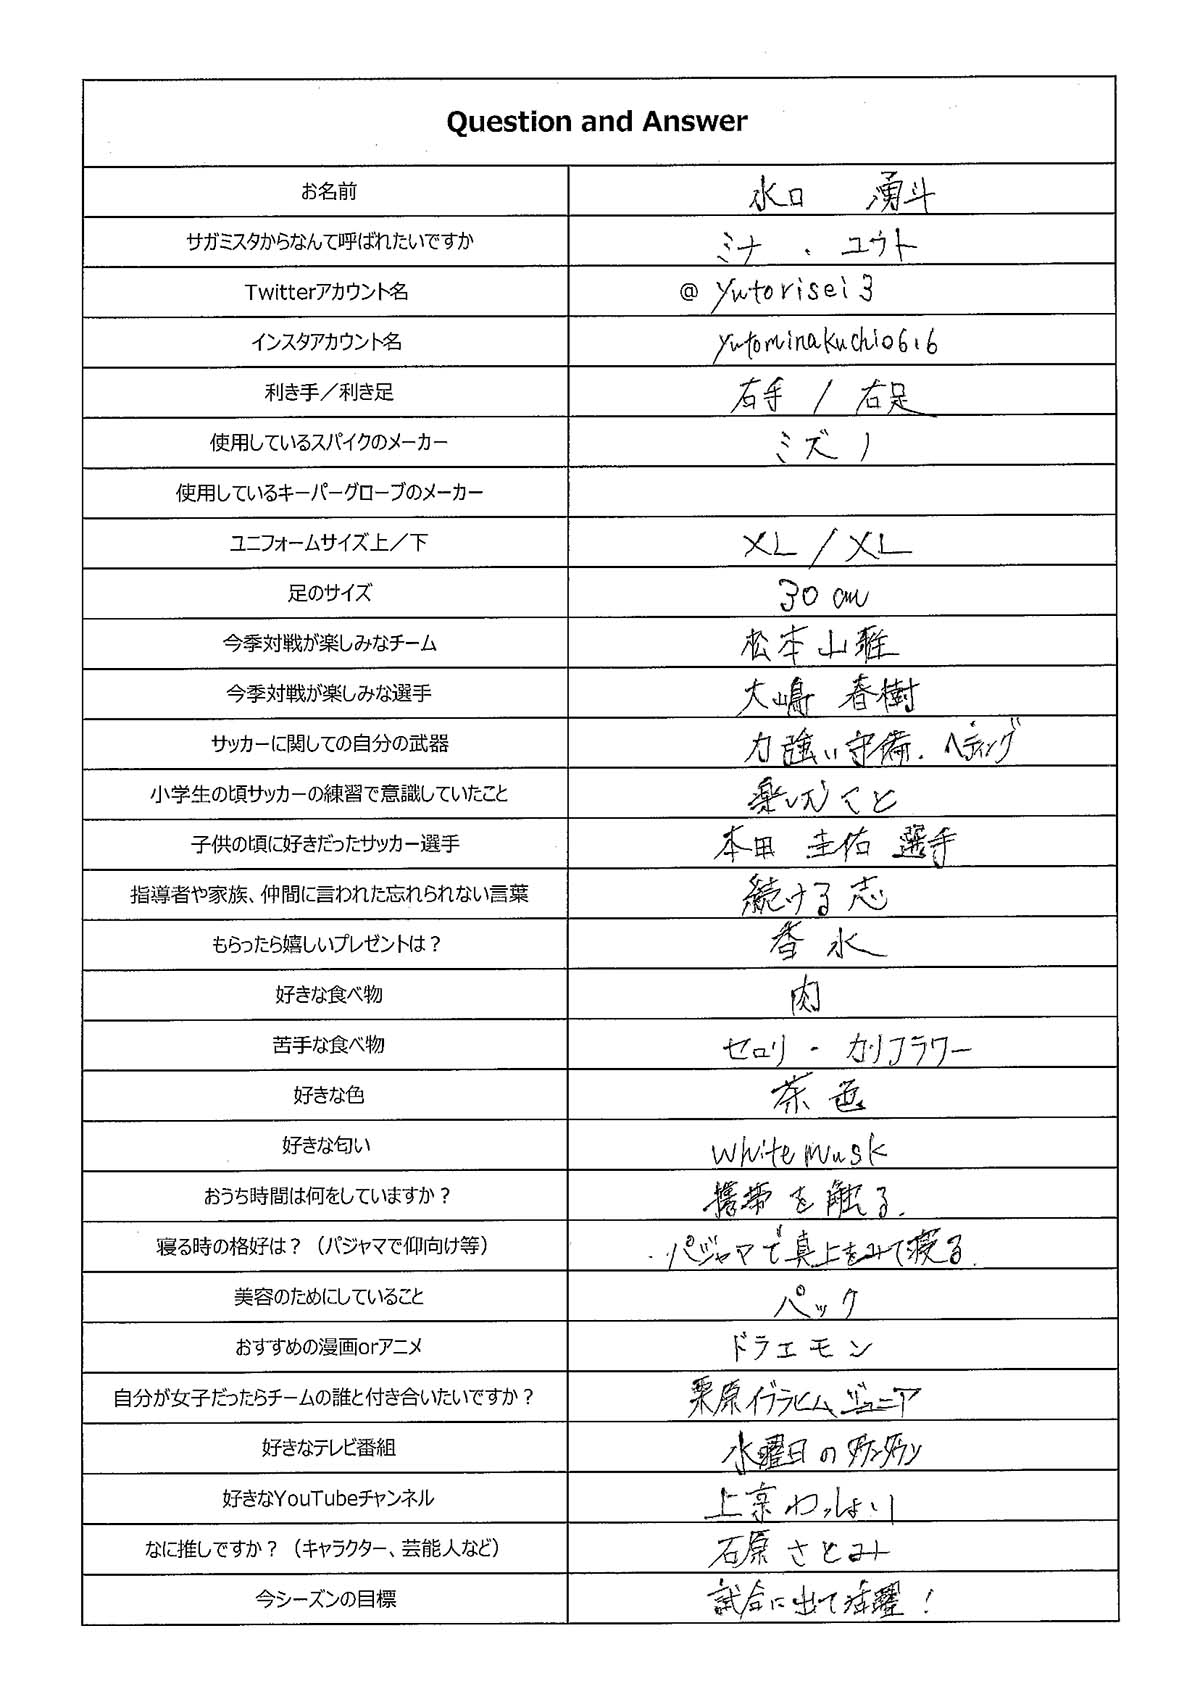 Question and Answer
お名前 水口 湧斗
サガミスタからなんて呼ばれたいですか ミナ ・ ユウト
Twitterアカウント名 @ yutorisei3
インスタアカウント名 yutominakuchi0616
利き手／利き足 右手 / 右足
使用しているスパイクのメーカー ミズノ
使用しているキーパーグローブのメーカー
ユニフォームサイズ上／下 XL / XL
足のサイズ 30 cm
今季対戦が楽しみなチーム 松本山雅
今季対戦が楽しみな選手 大嶋 春樹
サッカーに関しての自分の武器 力強い守備、ヘディング
小学生の頃サッカーの練習で意識していたこと 楽しむこと
子供の頃に好きだったサッカー選手 本田 圭佑 選手
指導者や家族、仲間に言われた忘れられない言葉 続ける 志
もらったら嬉しいプレゼントは？ 香水
好きな食べ物 肉
苦手な食べ物 セロリ ・ カリフラワー
好きな色 茶色
好きな匂い white musk
おうち時間は何をしていますか？ 携帯を触る.
寝る時の格好は？（パジャマで仰向け等） ・パジャマで真上をみて寝る.
美容のためにしていること パック
おすすめの漫画orアニメ ドラエモン
自分が女子だったらチームの誰と付き合いたいですか？ 栗原イブラヒムジュニア
好きなテレビ番組 水曜日のダウンタウン
好きなYouTubeチャンネル 上京わっしょい
なに推しですか？（キャラクター、芸能人など） 石原さとみ
今シーズンの目標 試合に出て活躍！